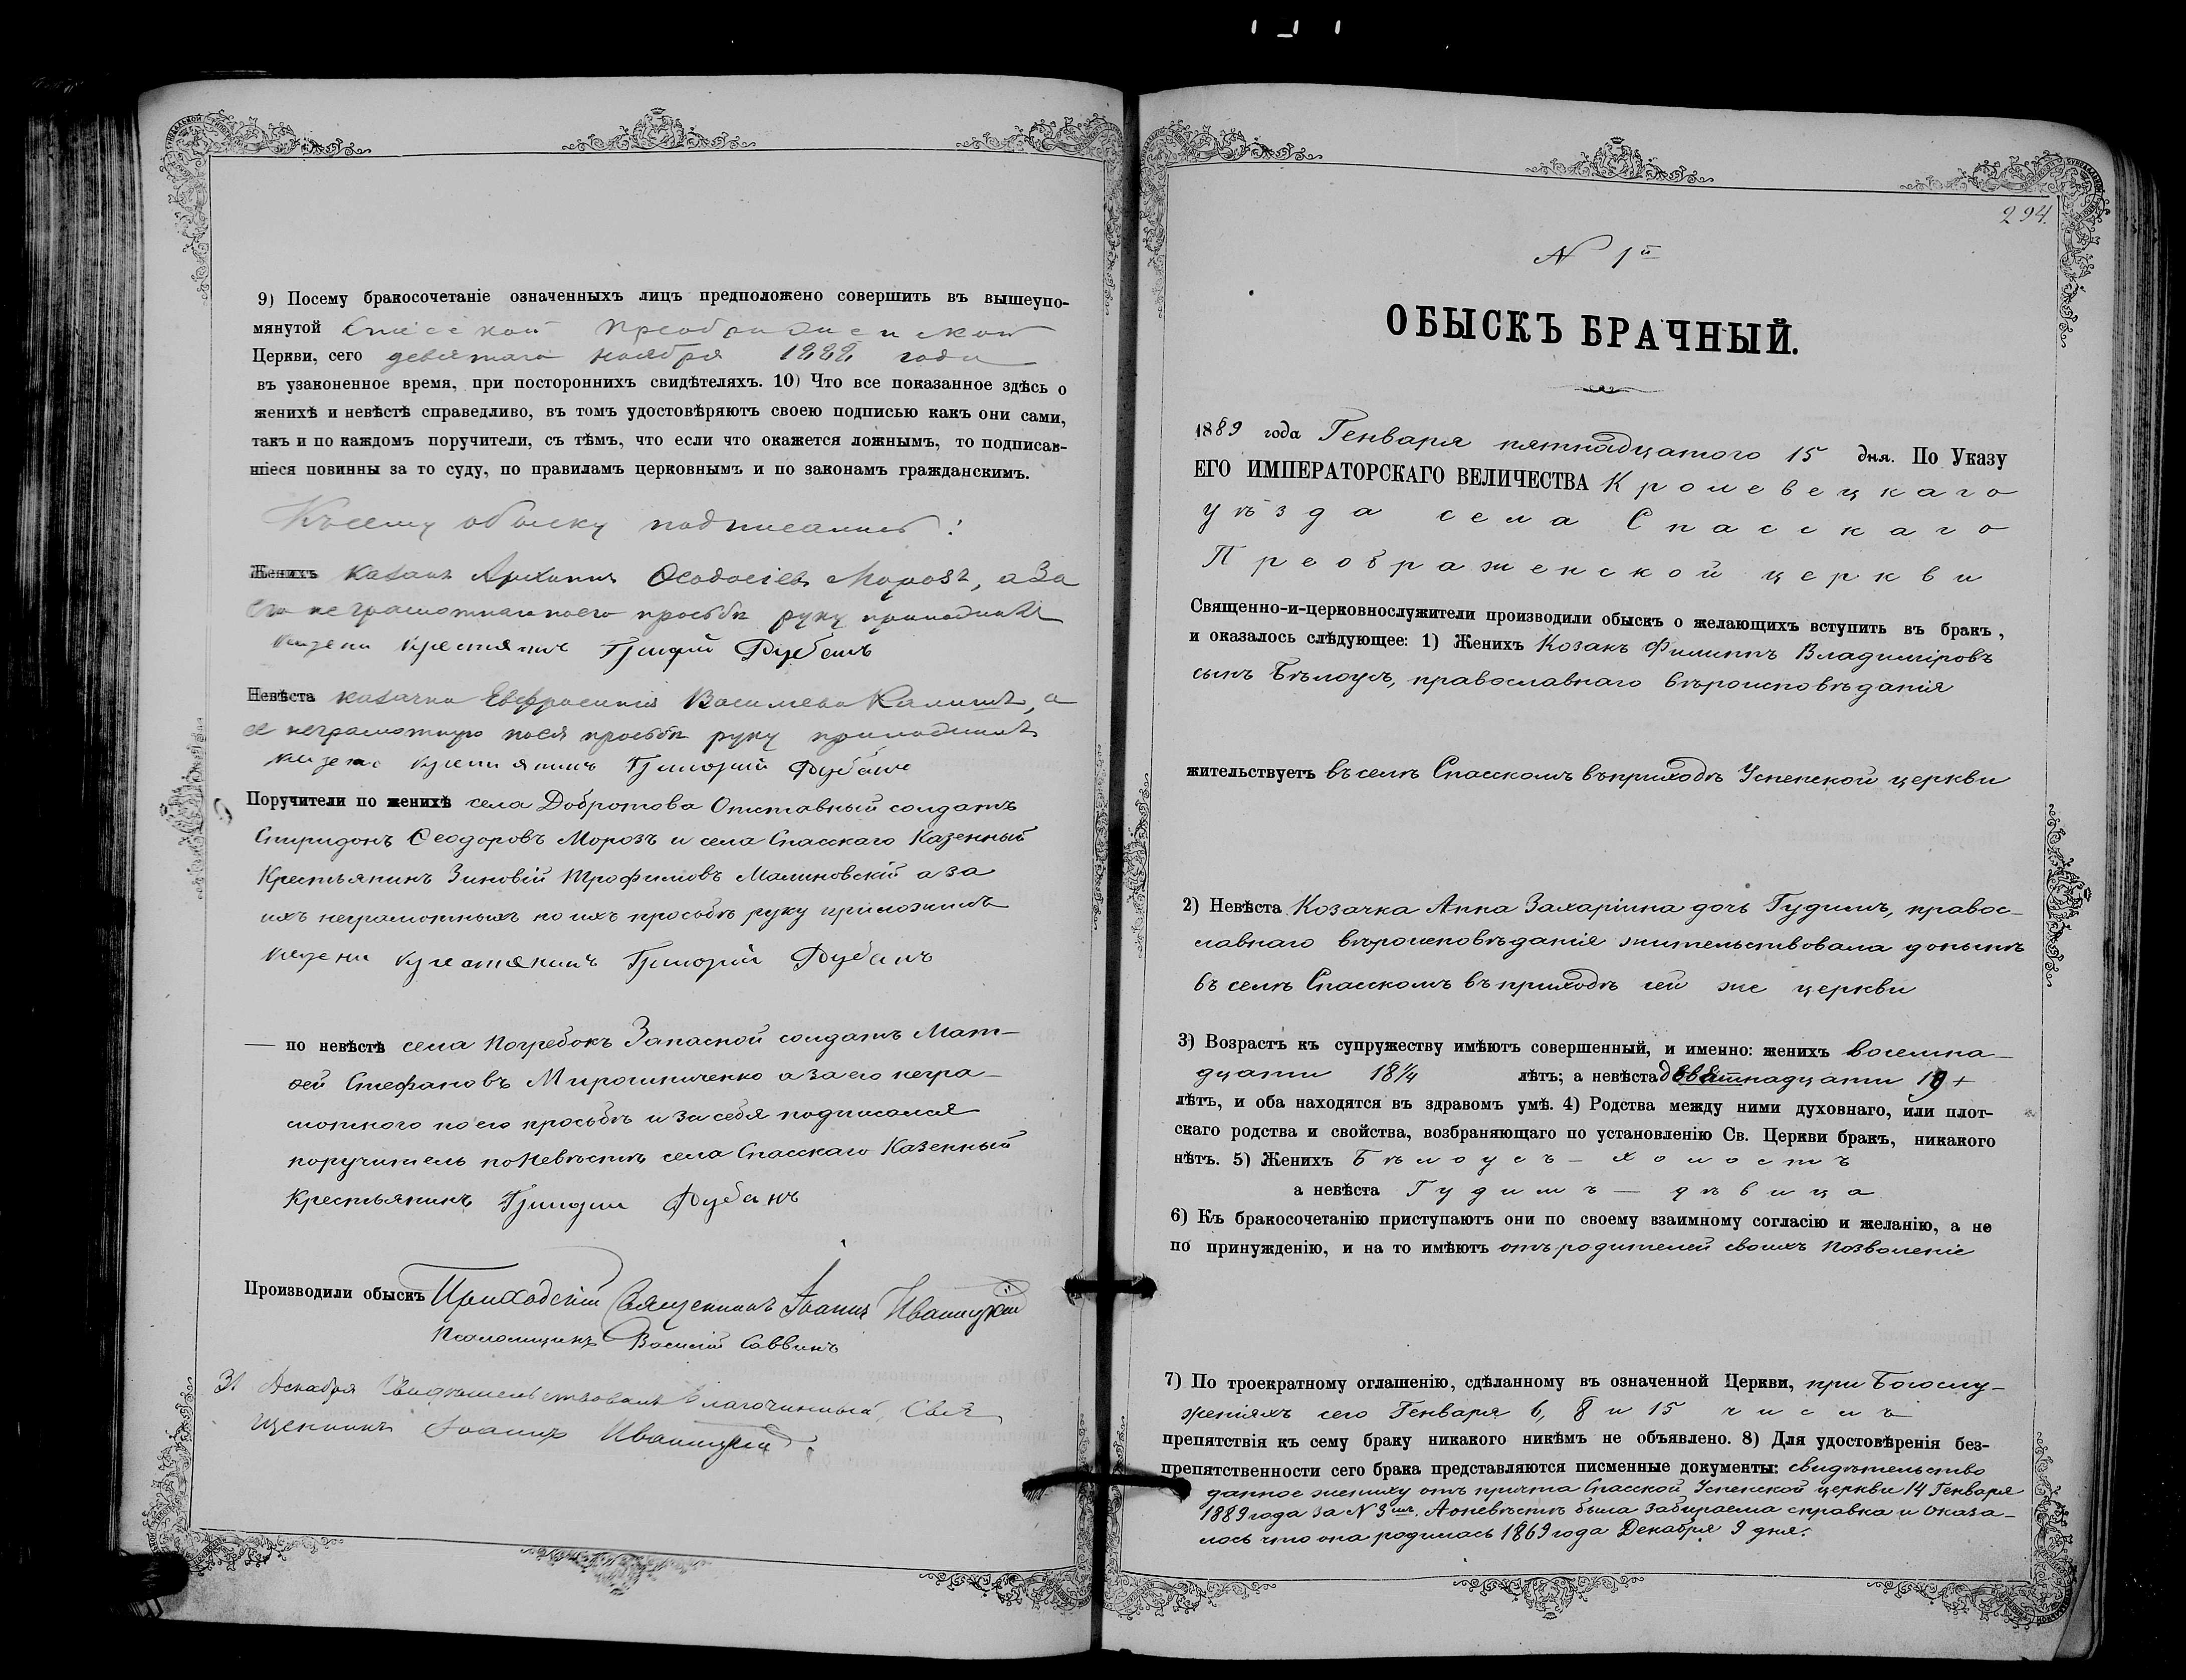 9) Посему бракосочетаніе означенныхъ лицъ предположено совершить въ вышеупо-
мянутой Спасской Преображенской
Церкви, сего девятаго Ноября 1888 года
въ узаконенное время, при постороннихъ свидѣтеляхъ. 10) Что все показанное здѣсь о
женихѣ и невѣстѣ справедливо, въ томъ удостовѣряютъ своею подписью какъ они сами,
такъ и по каждомъ поручители, съ тѣмъ, что если что окажется ложнымъ, то подписав-
шіеся повинны за то суду, по правиламъ церковнымъ и по законамъ гражданскимъ.
Къ сему обыску подписались:
Женихъ казакъ Архипъ Ѳеодосіевъ Морозъ, а за
его неграмотнаго по его просьбѣ руку приложилъ
казени крестянинъ Григорій Рубанъ
Невѣста казачка Евфросинія Васильева, а
ее неграмотную по ея просьбѣ руку приложилъ
крестянинъ Григорій Рубанъ
Поручители по женихѣ села Добротова Отставный солдатъ
Спиридонъ Ѳеодоровъ Морозъ и села Спасскаго Казенный
Крестьянинъ Зиновій Трофимовъ Малиновскій а за
ихъ неграмотныхъ по ихъ просьбѣ руку приложилъ
казени крестянинъ Григорій Рубанъ
— по невѣстѣ села Погребокъ Запасной солдатъ Мат-
ѳей Стефановъ Мирошниченко а за его негра-
мотного по его просьбѣ и за себя подписался
поручитель по Невѣстѣ села Спасскаго Казенный
Крестьянинъ Григорій Рубанъ
Производили обыскъ Приходскій Священникъ Іоаннъ Иваницкій
Псаломщикъ Василій Саввинъ
31 Декабря Свидѣтельствовалъ Благочинный, Свя
щенникъ Іоаннъ Иваницкій
294
N 1й
ОБЫСКЪ БРАЧНЫЙ.
1889 года Генваря пятнадцатого 15 дня. По Указу
ЕГО ИМПЕРАТОРСКАГО ВЕЛИЧЕСТВА Кролевецкаго
уѣзда села Спасскаго
Преображенской церкви
Священно-и-церковнослужители производили обыскъ о желающихъ вступить въ бракъ,
и оказалось слѣдующее: 1) Женихъ Козакъ Филиппъ Владиміровъ
сынъ Бѣлоусъ, православнаго вѣроисповѣданія
жительствуетъ въ селѣ Спасскомъ въ приходѣ Успенской церкви
2) Невѣста Козачка Анна Захаріина дочь Гудимъ, правос-
лавнаго вѣроисповѣданія жительствовала донынѣ
въ селѣ Спасскомъ въ приходѣ сей же церкви
3) Возрастъ къ супружеству имѣютъ совершенный, и именно: женихъ восемна-
дцати 18¼ лѣтъ; а невѣста девятнадцати 19 +
лѣтъ, и оба находятся въ здравомъ умѣ. 4) Родства между ними духовнаго, или плот-
скаго родства и свойства, возбраняющаго по установленію Св. Церкви бракъ, никакого
нѣтъ. 5) Женихъ Бѣлоусъ — холостъ
а невѣста Гудимъ — дѣвица
6) Къ бракосочетанію приступаютъ они по своему взаимному согласію и желанію, а не
по принужденію, и на то имѣютъ отъ родителей своихъ позволеніе
7) По троекратному оглашенію, сдѣланному въ означенной Церкви, при Богослу-
женіяхъ сего Генваря 6, 8 и 15 числъ
препятствія къ сему браку никакого никѣмъ не объявлено. 8) Для удостовѣренія без-
препятственности сего брака представляются писменные документы: свидѣтельство
данное жениху отъ причта Спасской Успенской церкви 14 Генваря
1889 года за N 3мъ. А о невѣстѣ была забираема справка и оказа-
лось что она родилась 1869 года Декабря 9 дня.